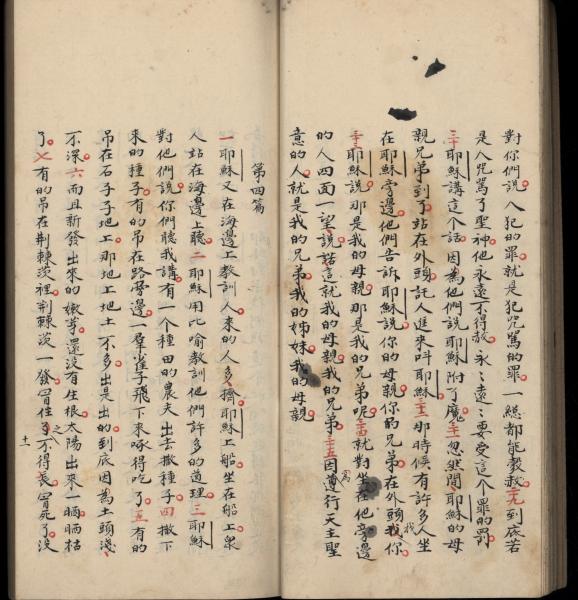 對你們說人犯的罪就是犯咒罵的罪一總都能彀赦二九到底若
是人咒罵了聖神他永遠不得赦永〻遠〻要受這个罪的罰
三十耶穌講這个話因為他們說耶穌附了魔三一忽然間耶穌的母
親兄弟到了站在外頭託人進來呌耶穌三二那時候有許多人坐
在耶穌旁邊他們告訴耶穌說你的母親你的兄弟在外頭找你
三三耶穌說那是我的母親那是我的兄弟呢三四就對坐在他旁邊
的人四面一望說話這就我的母親我的兄弟三五因為遵行天主聖
意的人就是我的兄弟我的姊妹我的母親
第四篇
一耶穌又在海邊上教訓人來的人多擠耶穌上船坐在船上衆
人站在海邊上聽二耶穌用比喻教訓他們許多的道理三耶穌
對他們說你們聽我講有一个種田的農夫出去撒種子四撒下
來的種子有的吊在路旁邊一羣雀子飛下來啄得吃了五有的
吊在石子子地上那地上地土不多出是出的到底因為土頭淺
不深六而且新發出來的嫩芽還没有生根太陽出來一晒晒枯
了七有的吊在荆棘茨裡荆棘茨一發冒住了之不得長冒死了没
土